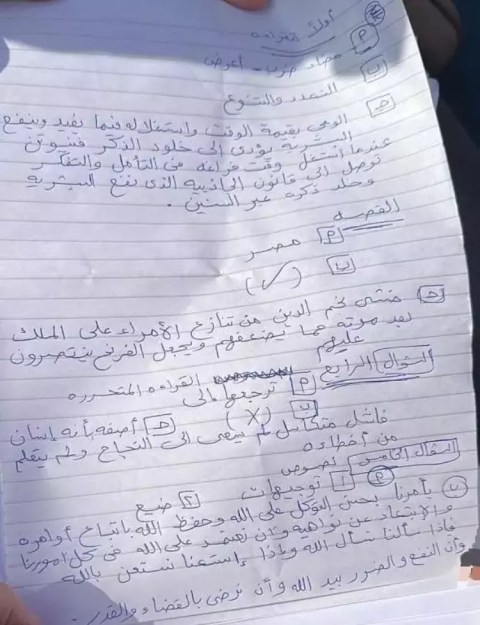 أولاً القراءة
P
مضاد ضرب - أعرض
ب التعدد والتنوع
حـ الوعي بقيمة الوقت واستغلاله فيما يفيد وينفع
البشرية يؤدي إلى خلود الذكر فنيوتن
عندما استغل وقت فراغه في التأمل والتفكر
توصل إلى قانون الجاذبية الذي نفع البشرية
وخلد ذكره عبر السنين.
القصة
P مصر
ب (✓)
حـ خشى نجم الدين من تنازع الأمراء على الملك
بعد موته مما يضعفهم ويجعل الفرنج ينتصرون
عليهم
السؤال الرابع القراءة المتحررة
P ترجعها إلى
ب (X) حـ أصفه بأنه إنسان
فاشل متكاسل لم يسعى إلى النجاح ولم يتعلم
من أخطاءه
السؤال الخامس نصوص
P ١ توجيهات ٢ ضيع
ب يأمرنا بحسن التوكل على الله وحفظ الله باتباع أوامره
والابتعاد عن نواهيه وأن نعتمد على الله في كل أمورنا
فإذا سألنا نسأل الله وإذا إستعنا نستعن بالله
وأن النفع والضرر بيد الله وأن نرضى بالقضاء والقدر.